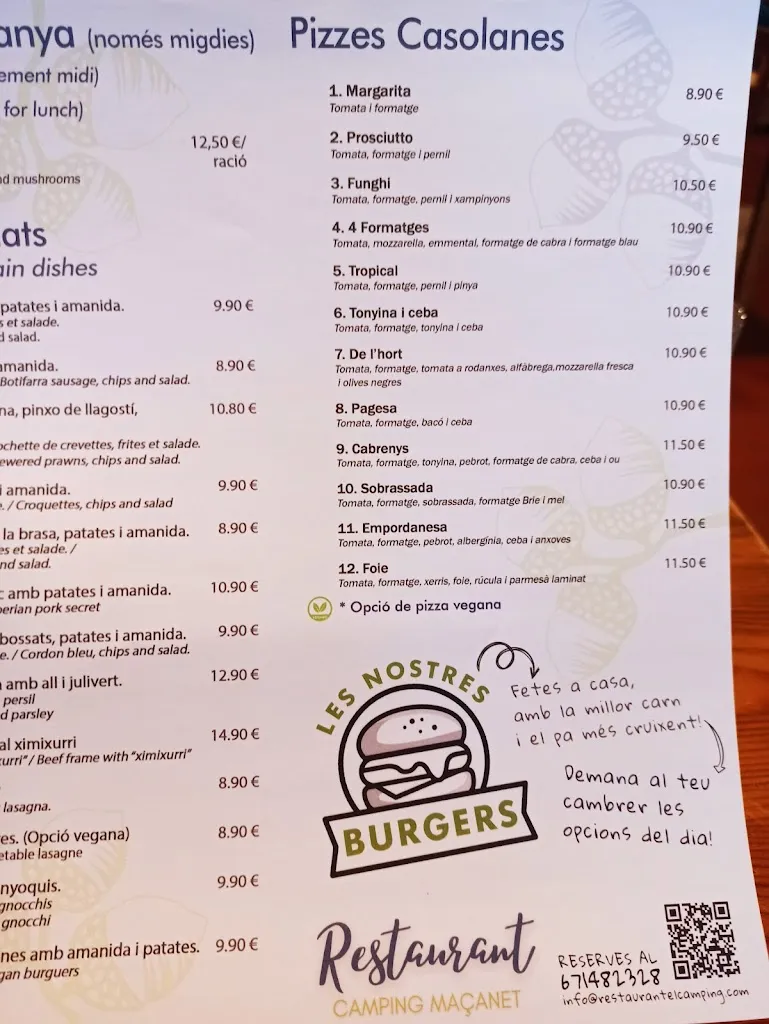 anya (només migdies)
ement midi)
for lunch)
12,50 €/
ració
nd mushrooms
ats
ain dishes
patates i amanida. 9.90 €
s et salade.
d salad.
amanida. 8.90 €
Botifarra sausage, chips and salad.
na, pinxo de llagostí, 10.80 €
ochette de crevettes, frites et salade.
ewered prawns, chips and salad.
i amanida. 9.90 €
e. / Croquettes, chips and salad
la brasa, patates i amanida. 8.90 €
es et salade. /
nd salad.
c amb patates i amanida. 10.90 €
perian pork secret
bossats, patates i amanida. 9.90 €
e. / Cordon bleu, chips and salad.
amb all i julivert. 12.90 €
persil
d parsley
al ximixurri 14.90 €
urri" / Beef frame with "ximixurri"
8.90 €
lasagna.
es. (Opció vegana) 8.90 €
etable lasagne
nyoquis. 9.90 €
gnocchis
gnocchi
nes amb amanida i patates. 9.90 €
gan burguers
Pizzes Casolanes
1. Margarita 8.90 €
Tomata i formatge
2. Prosciutto 9.50 €
Tomata, formatge i pernil
3. Funghi 10.50 €
Tomata, formatge, pernil i xampinyons
4. 4 Formatges 10.90 €
Tomata, mozzarella, emmental, formatge de cabra i formatge blau
5. Tropical 10.90 €
Tomata, formatge, pernil i pinya
6. Tonyina i ceba 10.90 €
Tomata, formatge, tonyina i ceba
7. De l'hort 10.90 €
Tomata, formatge, tomata a rodanxes, alfàbrega,mozzarella fresca
i olives negres
8. Pagesa 10.90 €
Tomata, formatge, bacó i ceba
9. Cabrenys 11.50 €
Tomata, formatge, tonyina, pebrot, formatge de cabra, ceba i ou
10. Sobrassada 10.90 €
Tomata, formatge, sobrassada, formatge Brie i mel
11. Empordanesa 11.50 €
Tomata, formatge, pebrot, albergínia, ceba i anxoves
12. Foie 11.50 €
Tomata, formatge, xerris, foie, rúcula i parmesà laminat
* Opció de pizza vegana
LES NOSTRES
BURGERS
Fetes a casa,
amb la millor carn
i el pa més cruixent!
Demana al teu
cambrer les
opcions del dia!
Restaurant
CAMPING MAÇANET
RESERVES AL
671482328
info@restaurantelcamping.com